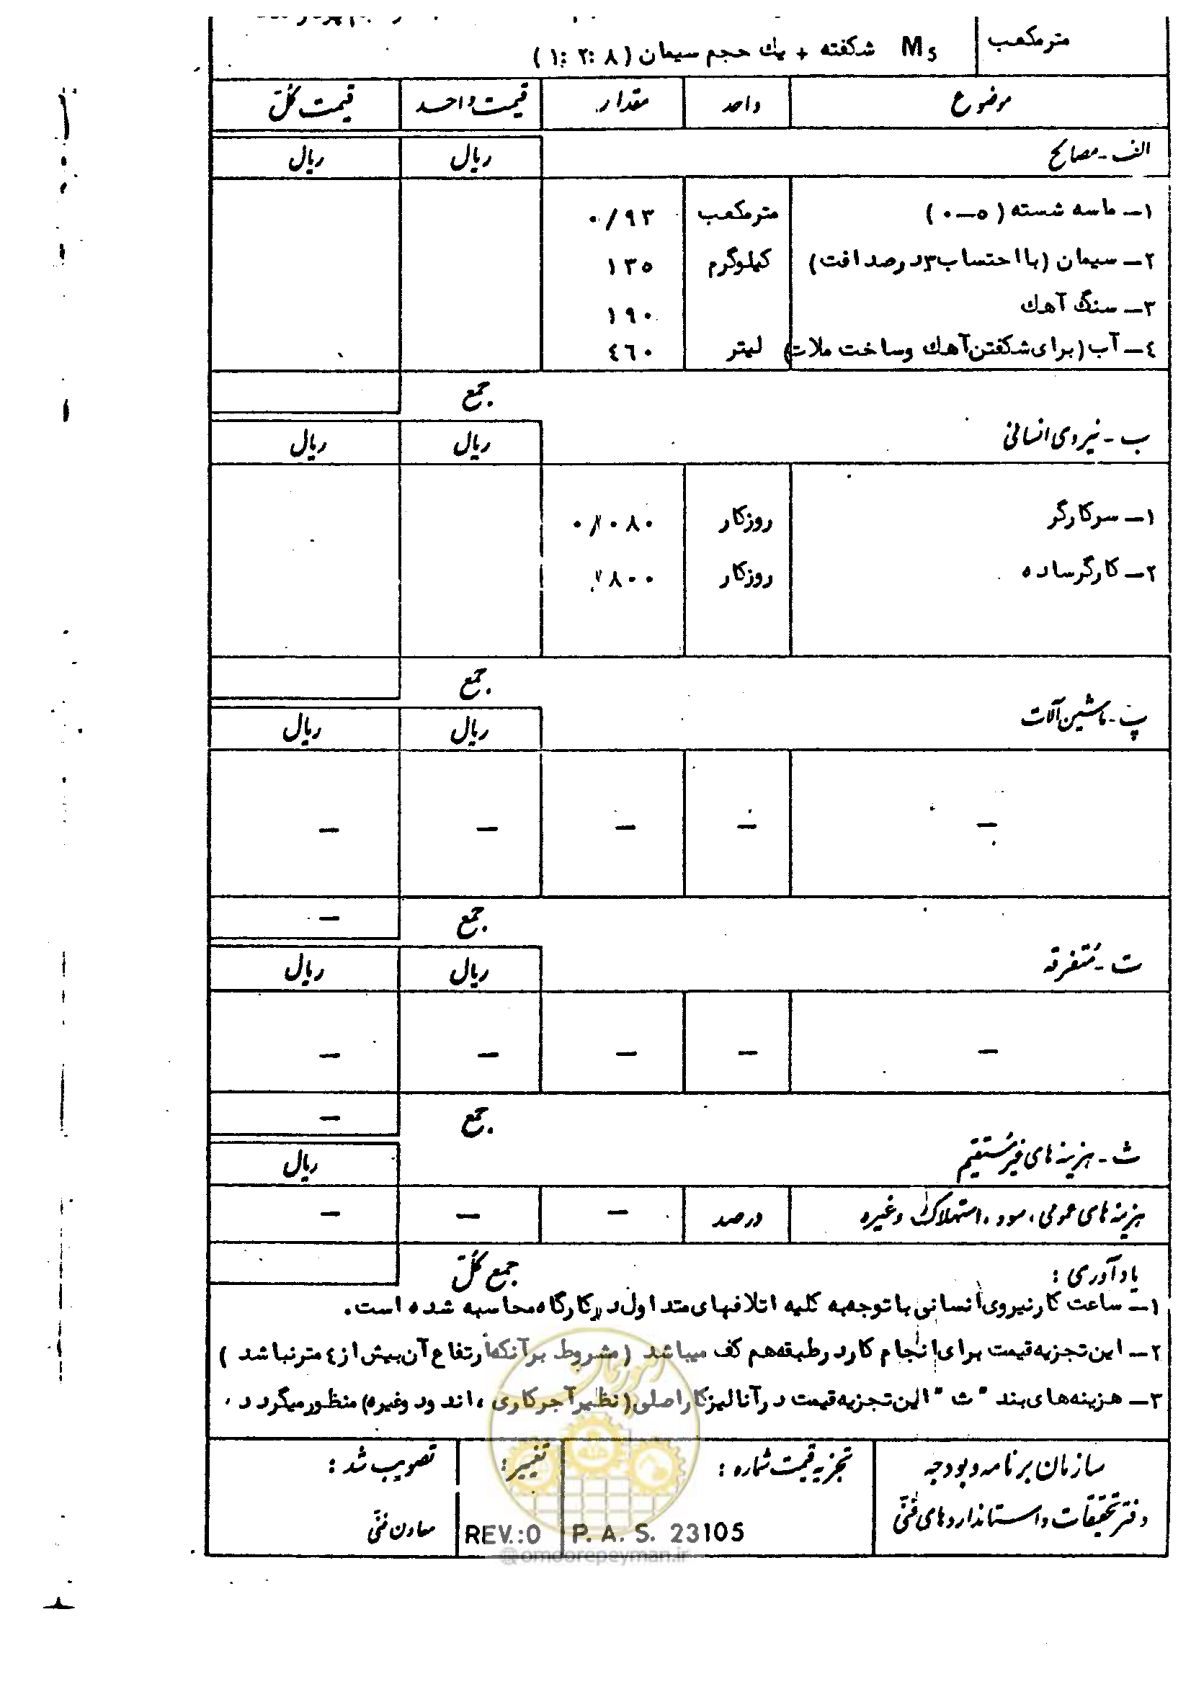 مترمکعب
M5 شکفته + یك حجم سیمان (۸ :۲ :۱)
موضوع واحد مقدار قیمت واحد قیمت کلّ
الف - مصالح ریال ریال
۱- ماسه شسته (۵-۰) مترمکعب ۰/۹۳
۲- سیمان (با احتساب ۳درصد افت) کیلوگرم ۱۳۵
۳- سنگ آهك ۱۹۰
٤- آب (برای شکفتن آهك وساخت ملات) لیتر ٤٦۰
جمع
ب - نیروی انسانی ریال ریال
۱- سرکارگر روزکار ۰/۰۸۰
۲- کارگرساده روزکار /۸۰۰
جمع
پ - ماشین آلات ریال ریال
- - - - -
جمع -
ت - متفرقه ریال ریال
- - - - -
جمع -
ث - هزینه های غیرمستقیم ریال
هزینه های عمومی ، سود ، استهلاک وغیره درصد - - -
جمع کلّ
یادآوری :
۱- ساعت کارنیروی انسانی باتوجه به کلیه اتلافهای متداول درکارگاه محاسبه شده است.
۲- این تجزیه قیمت برای انجام کاردرطبقه هم کف میباشد (مشروط برآنکه ارتفاع آن بیش از٤ مترنباشد )
۳- هزینه های بند "ث" این تجزیه قیمت درآنالیزکاراصلی (نظیرآجرکاری ، اندود وغیره) منظورمیگردد .
سازمان برنامه وبودجه تجزیه قیمت شماره : تغییر: تصویب شد :
دفتر تحقیقات و استانداردهای فنّی P. A. S. 23105 REV.:0 معاون فنّی
@omoorepeyman.ir